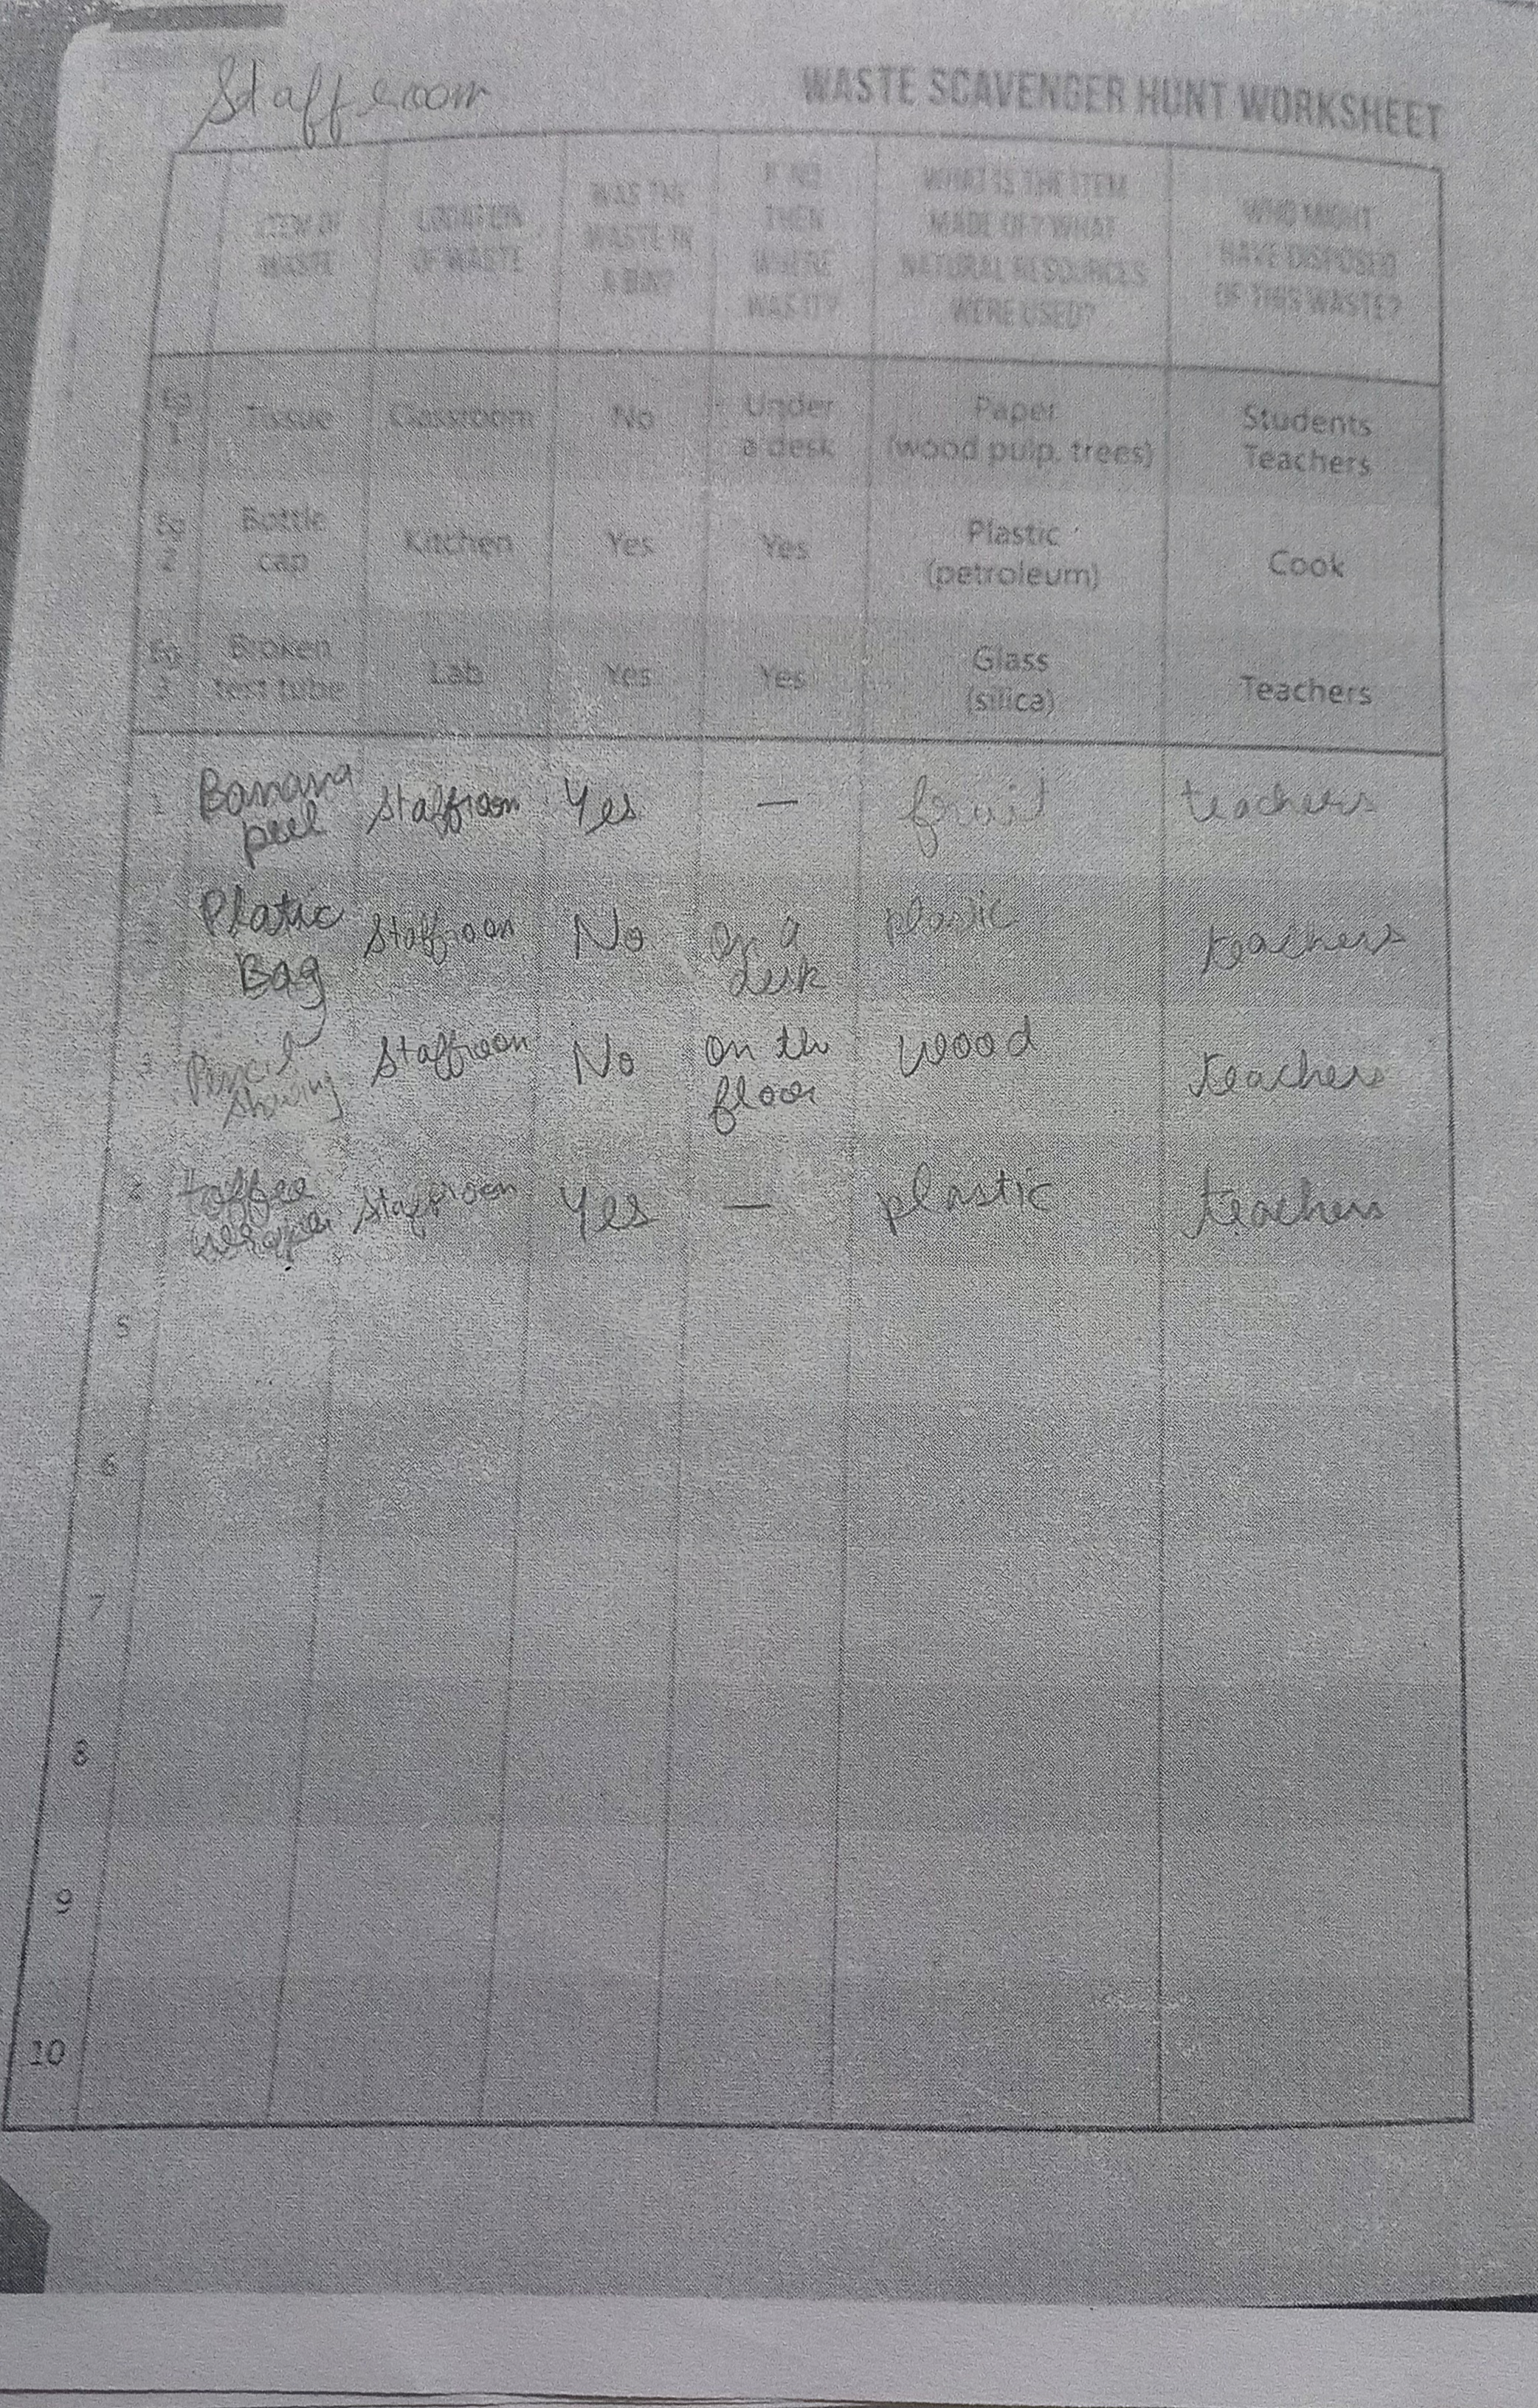 Staffroom
WASTE SCAVENGER HUNT WORKSHEET
ITEM OF WASTE
LOCATION OF WASTE
WAS THE WASTE IN A BIN?
IF NO THEN WHERE WAS IT?
WHAT IS THE ITEM MADE OF? WHAT NATURAL RESOURCES WERE USED?
WHO MIGHT HAVE DISPOSED OF THIS WASTE?
Eg 1 Tissue Classroom No Under a desk Paper (wood pulp, trees) Students Teachers
Eg 2 Bottle cap Kitchen Yes Yes Plastic (petroleum) Cook
Eg 3 Broken test tube Lab Yes Yes Glass (silica) Teachers
1 Banana peel staffroom Yes — fruit teachers
2 Platic Bag staffroom No On a desk plastic teachers
3 Pencil shaving staffroom No on the floor wood teachers
toffee wrapper staffroom Yes — plastic teachers
5
6
7
8
9
10